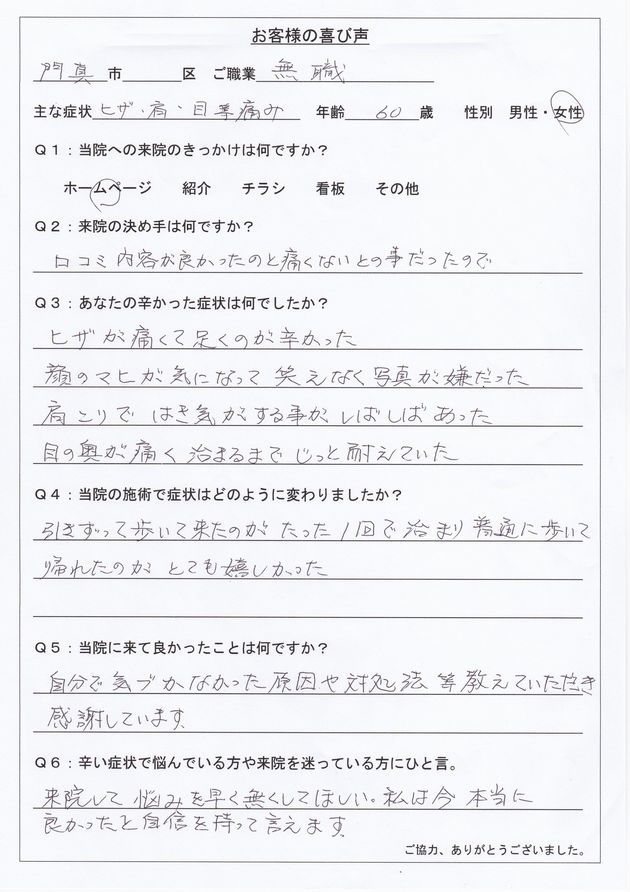 お客様の喜び声
門真市 区 ご職業 無職
主な症状 ヒザ・肩・目等痛み 年齢 60 歳 性別 男性・女性
Q1：当院への来院のきっかけは何ですか？
ホームページ 紹介 チラシ 看板 その他
Q2：来院の決め手は何ですか？
口コミ内容が良かったのと痛くないとの事だったので
Q3：あなたの辛かった症状は何でしたか？
ヒザが痛くて足くのが辛かった
顔のマヒが気になって笑えなく写真が嫌だった
肩こりではき気がする事がしばしばあった
目の奥が痛く治まるまでじっと耐えていた
Q4：当院の施術で症状はどのように変わりましたか？
引きずって歩いて来たのがたった1回で治まり普通に歩いて
帰れたのがとても嬉しかった
Q5：当院に来て良かったことは何ですか？
自分で気づかなかった原因や対処法等教えていただき
感謝しています
Q6：辛い症状で悩んでいる方や来院を迷っている方にひと言。
来院して悩みを早く無くしてほしい。私は今本当に
良かったと自信を持って言えます
ご協力、ありがとうございました。